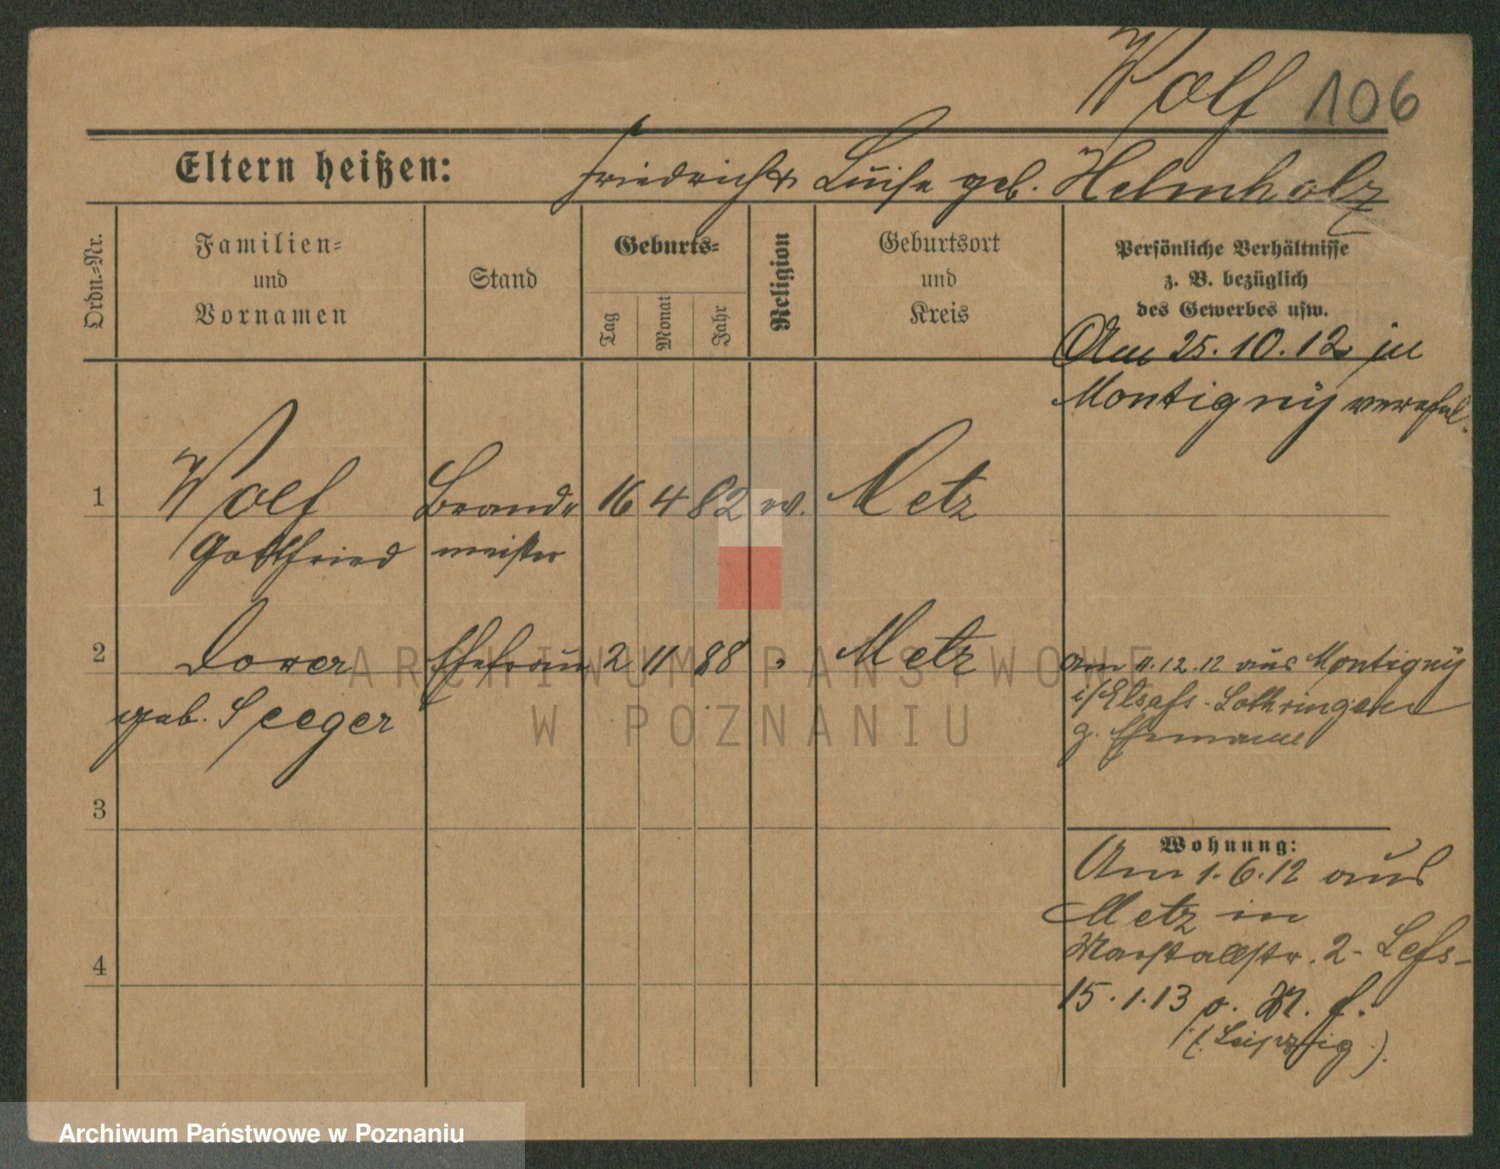 Wolf 106
Eltern heißen: Friedrich u. Luise geb. Helmholz
Ordn.-Nr.
Familien-
und
Vornamen
Stand
Geburts-
Tag
Monat
Jahr
Religion
Geburtsort
und
Kreis
Persönliche Verhältnisse
z. B. bezüglich
des Gewerbes usw.
Am 25.10.12 in
Montigny verehel.
1 Wolf Brand- 16 4 82 ev. Metz
Gottfried meister
2 Dorer Ehefrau 2 11 88 " Metz
geb. Speeger
am 11.12.12 aus Montigny
i/Elsass-Lothringen
z. Ehemann
3
Wohnung:
Am 1.6.12 aus
Metz in
Marstallstr. 2-
4
15.1.13
(Leipzig).
ARCHIWUM PAŃSTWOWE
W POZNANIU
Archiwum Państwowe w Poznaniu